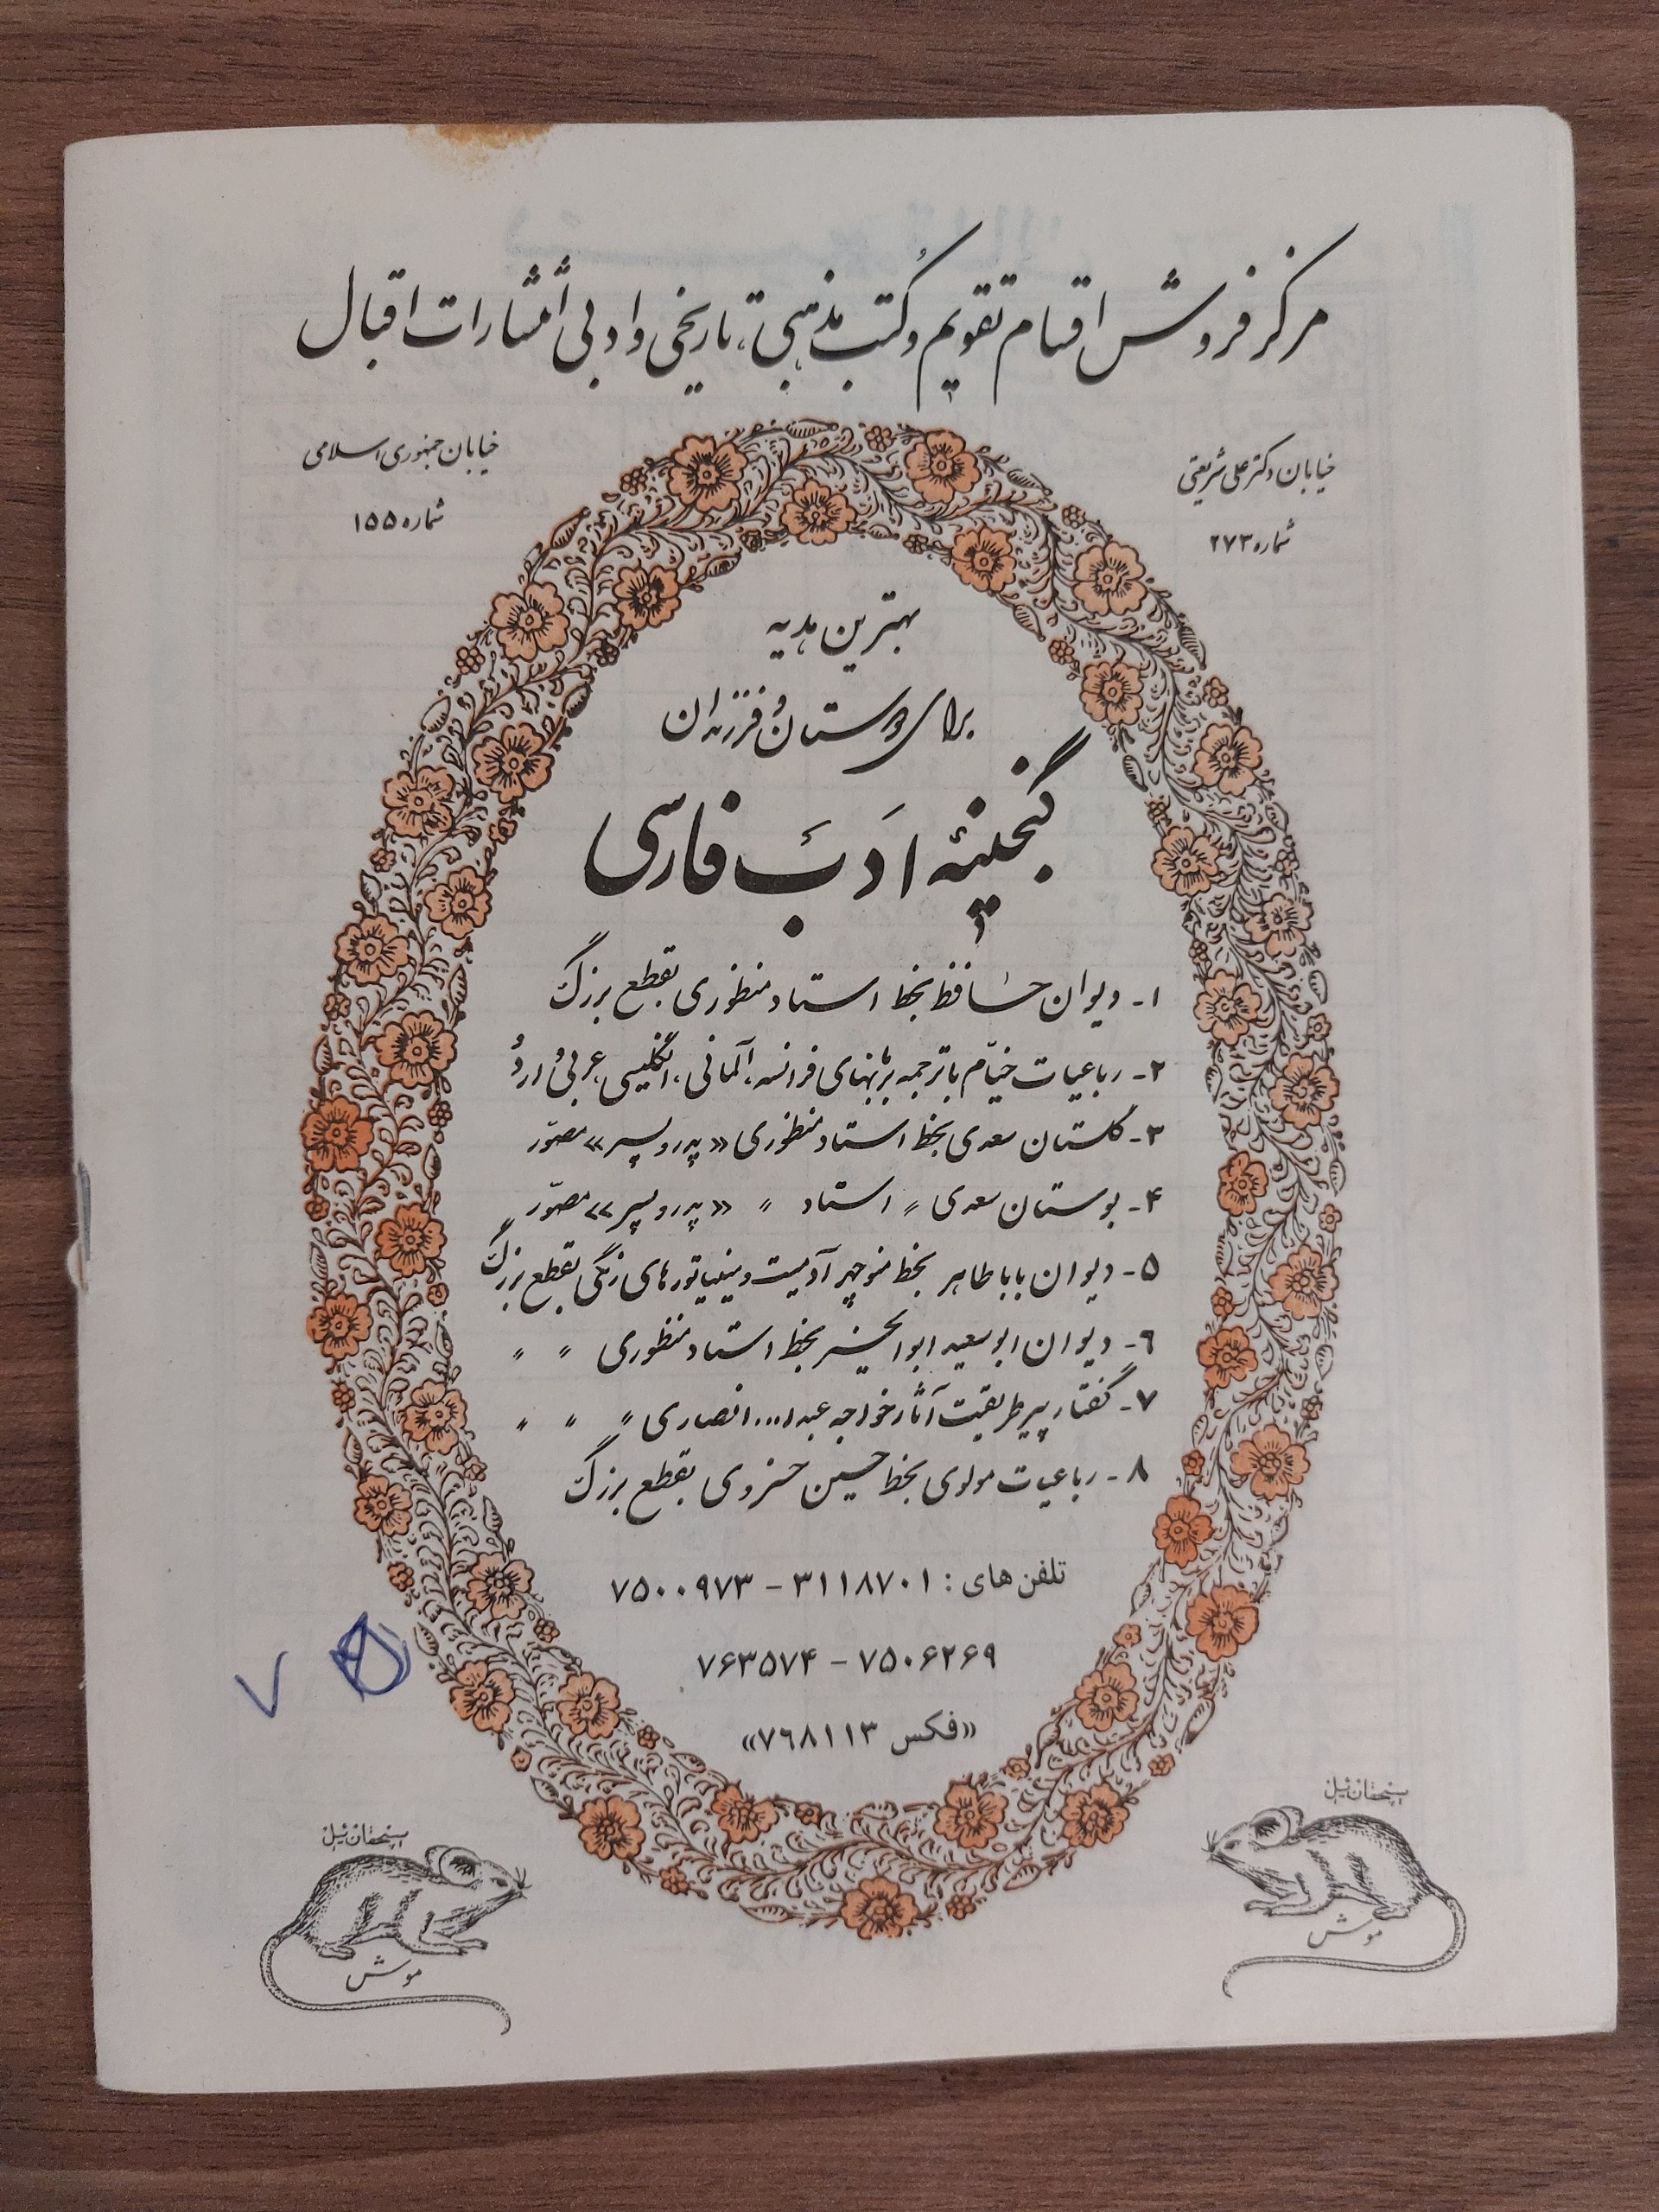 مرکز فروش اقسام تقویم و کتب مذهبی، تاریخی و ادبی انتشارات اقبال
خیابان دکتر علی شریعتی
شماره ۲۷۳
خیابان جمهوری اسلامی
شماره ۱۵۵
بهترین هدیه
برای دوستان و فرزندان
گنجینهٔ ادب فارسی
۱- دیوان حافظ بخط استاد منظوری بقطع بزرگ
۲- رباعیات خیّام با ترجمه بزبانهای فرانسه، آلمانی، انگلیسی، عربی و اردو
۳- گلستان سعدی بخط استاد منظوری «پدر و پسر» مصوّر
۴- بوستان سعدی 〃 استاد 〃 «پدر و پسر» مصوّر
۵- دیوان باباطاهر بخط منوچهر آدمیت و مینیاتورهای رنگی بقطع بزرگ
۶- دیوان ابوسعید ابوالخیر بخط استاد منظوری 〃 〃
۷- گفتار پیر طریقت آثار خواجه عبدا... انصاری 〃 〃 〃
۸- رباعیات مولوی بخط حسین خسروی بقطع بزرگ
تلفن های : ۳۱۱۸۷۰۱ - ۷۵۰۰۹۷۳
۷۵۰۶۲۶۹ - ۷۶۳۵۷۴
«فکس ۷۶۸۱۱۳»
۷ ۵
سیچقان ئیل
موش
سیچقان ئیل
موش